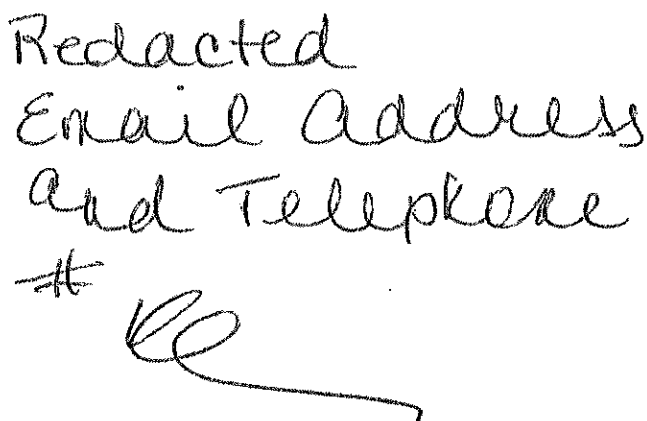 Redacted
Email Address
And Telephone
#